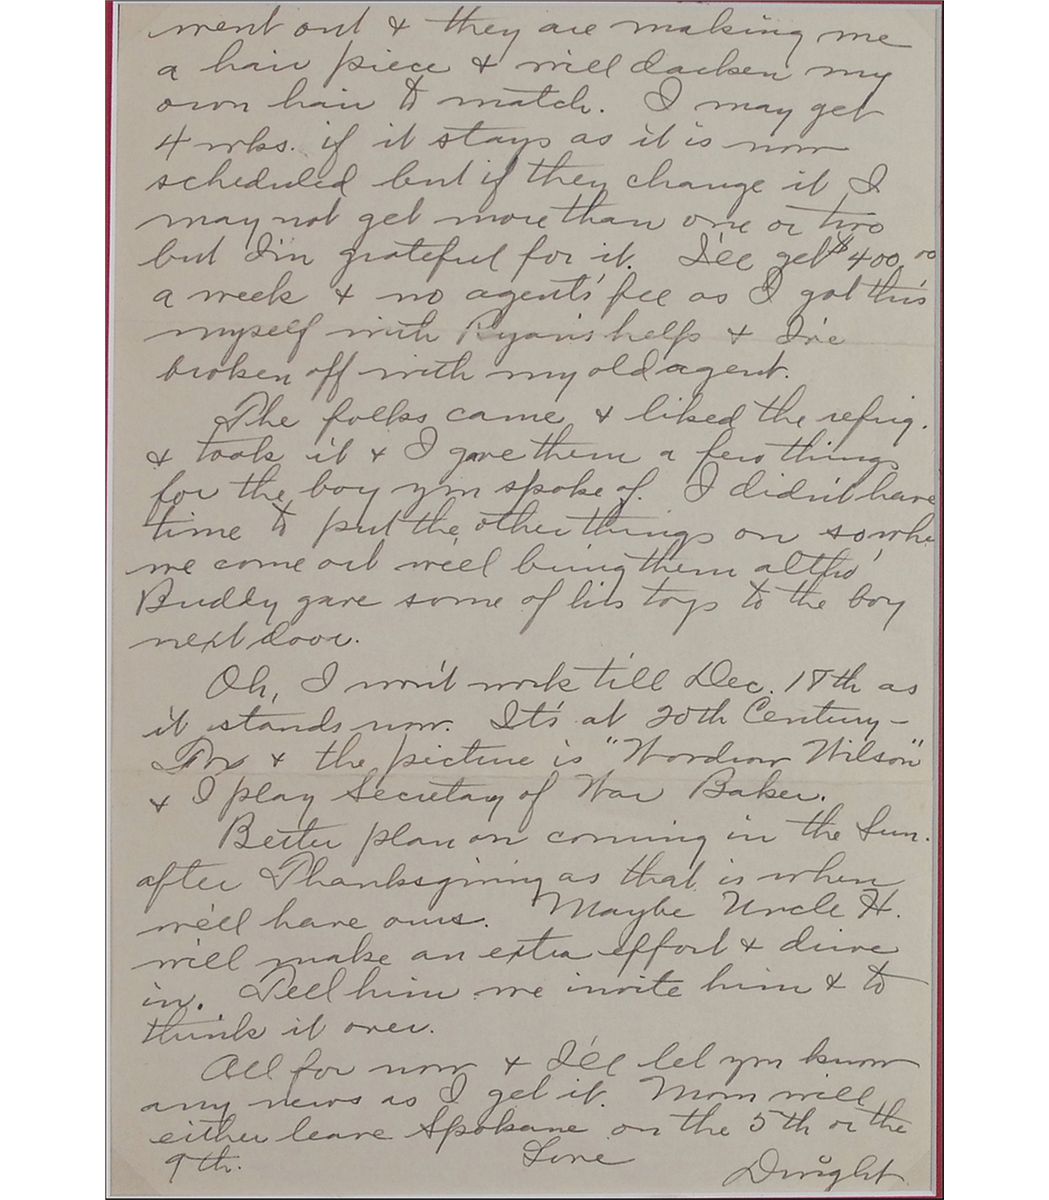 went out & they are making me
a hair piece & will darken my
own hair to match. I may get
4 wks. if it stays as it is now
scheduled but if they change it I
may not get more than one or two
but I'm grateful for it. I'll get $400.00
a week & no agents' fee as I got this
myself with Ryan's help & I've
broken off with my old agent.
The folks came & liked the refrig.
& took it & I gave them a few things
for the boy you spoke of. I didn't have
time to put the other things on so whe
we come out we'll bring them altho'
Buddy gave some of his toys to the boy
next door.
Oh, I won't work till Dec. 18th as
it stands now. It's at 20th Century-
Fox & the picture is "Woodrow Wilson"
& I play Secretary of War Baker.
Better plan on coming in the Sun.
after Thanksgiving as that is when
we'll have ours. Maybe Uncle H.
will make an extra effort & drive
in. Tell him we invite him & to
think it over.
All for now & I'll let you know
any news as I get it. Mom will
either leave Spokane on the 5th or the
9th. Love
Dwight